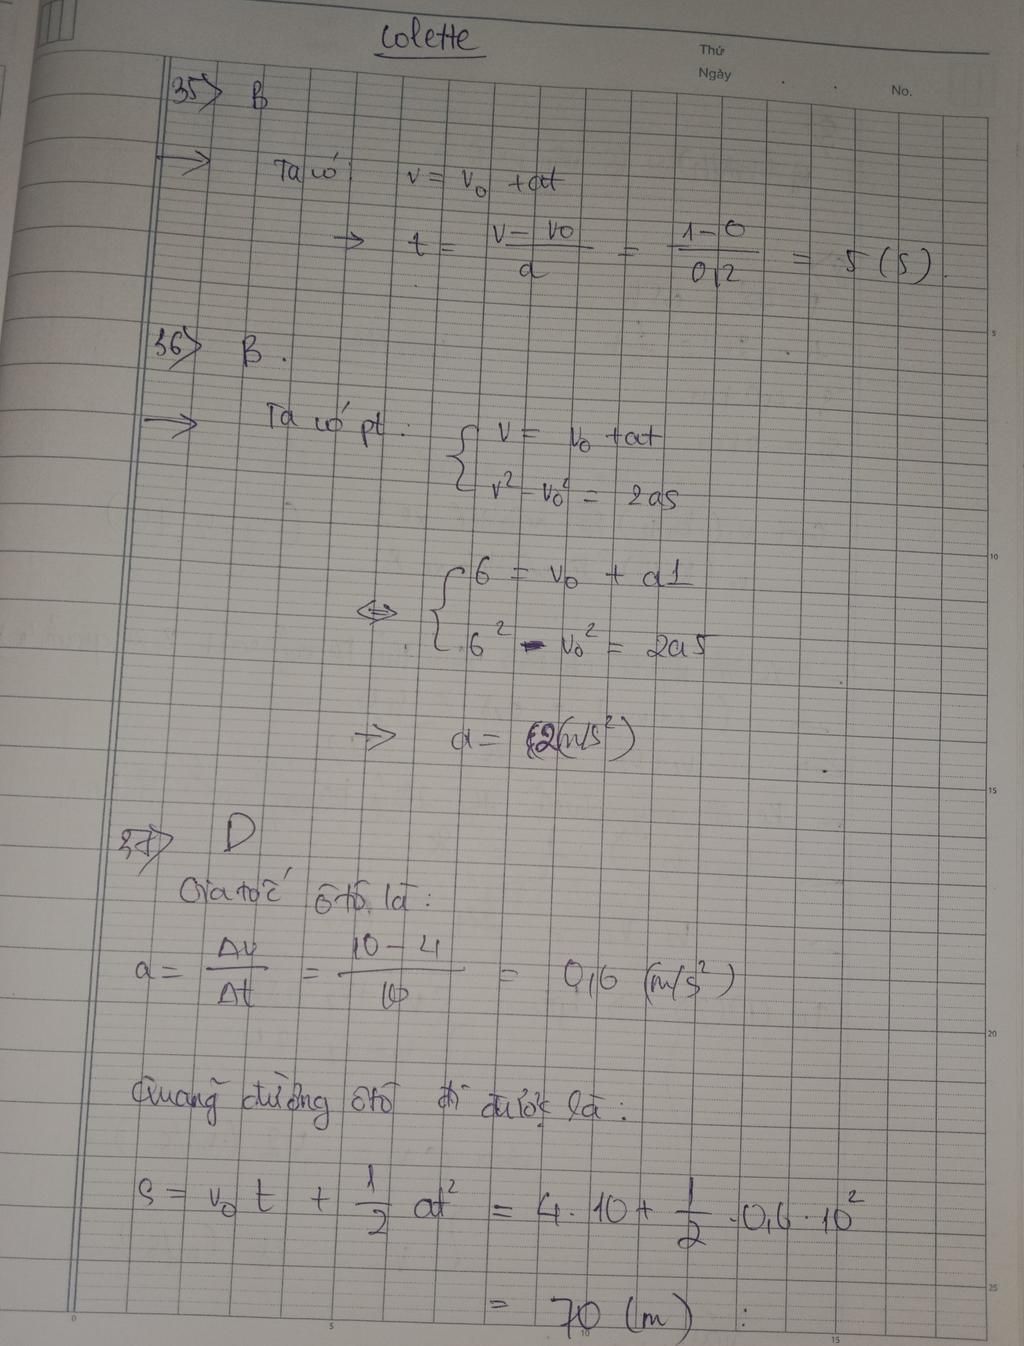 Colette
Thứ
Ngày
No.
35> B
→ Ta có v = v₀ + at
→ t = (v - v₀)/a = (1 - 0)/0,2 = 5 (s).
36> B.
→ Ta có pt: { v = v₀ + at
v² - v₀² = 2as
⇔ { 6 = v₀ + a1
6² - v₀² = 2a5
→ a = 2 (m/s²)
37> D
Gia tốc ôtô là:
a = Δv/Δt = (10 - 4)/10 = 0,6 (m/s²)
Quãng đường ôtô đi được là:
S = v₀t + 1/2 at² = 4.10 + 1/2 . 0,6 . 10²
= 70 (m) :
5
10
15
20
25
0
5
10
15